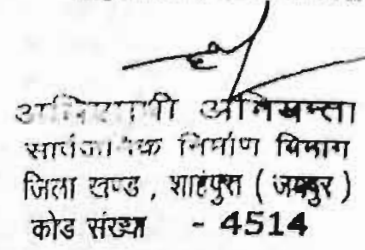 अधिशाषी अभियन्ता
सार्वजनिक निर्माण विभाग
जिला खण्ड, शाहपुरा (जयपुर)
कोड संख्या - 4514